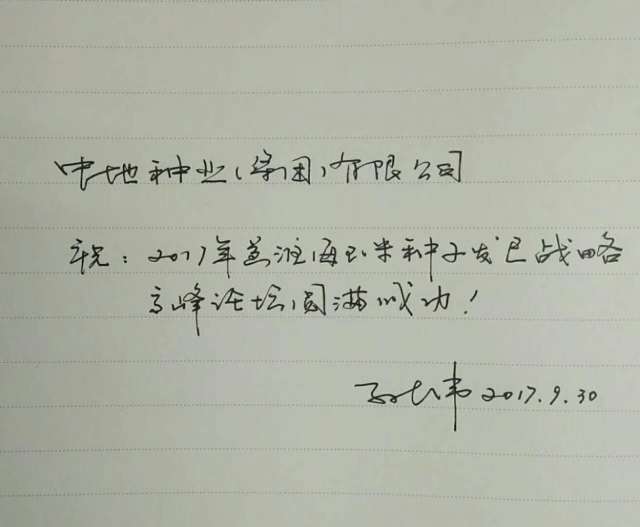 中地种业（集团）有限公司
祝：2017年黄淮海玉米种子发展战略
高峰论坛圆满成功！
2017.9.30